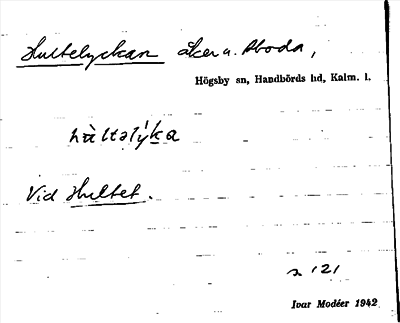 Hultelyckan åker u. Aboda,
Högsby sn, Handbörds hd, Kalm. l.
hùltəlýka
Vid Hultet.
s 121
Ivar Modéer 1942